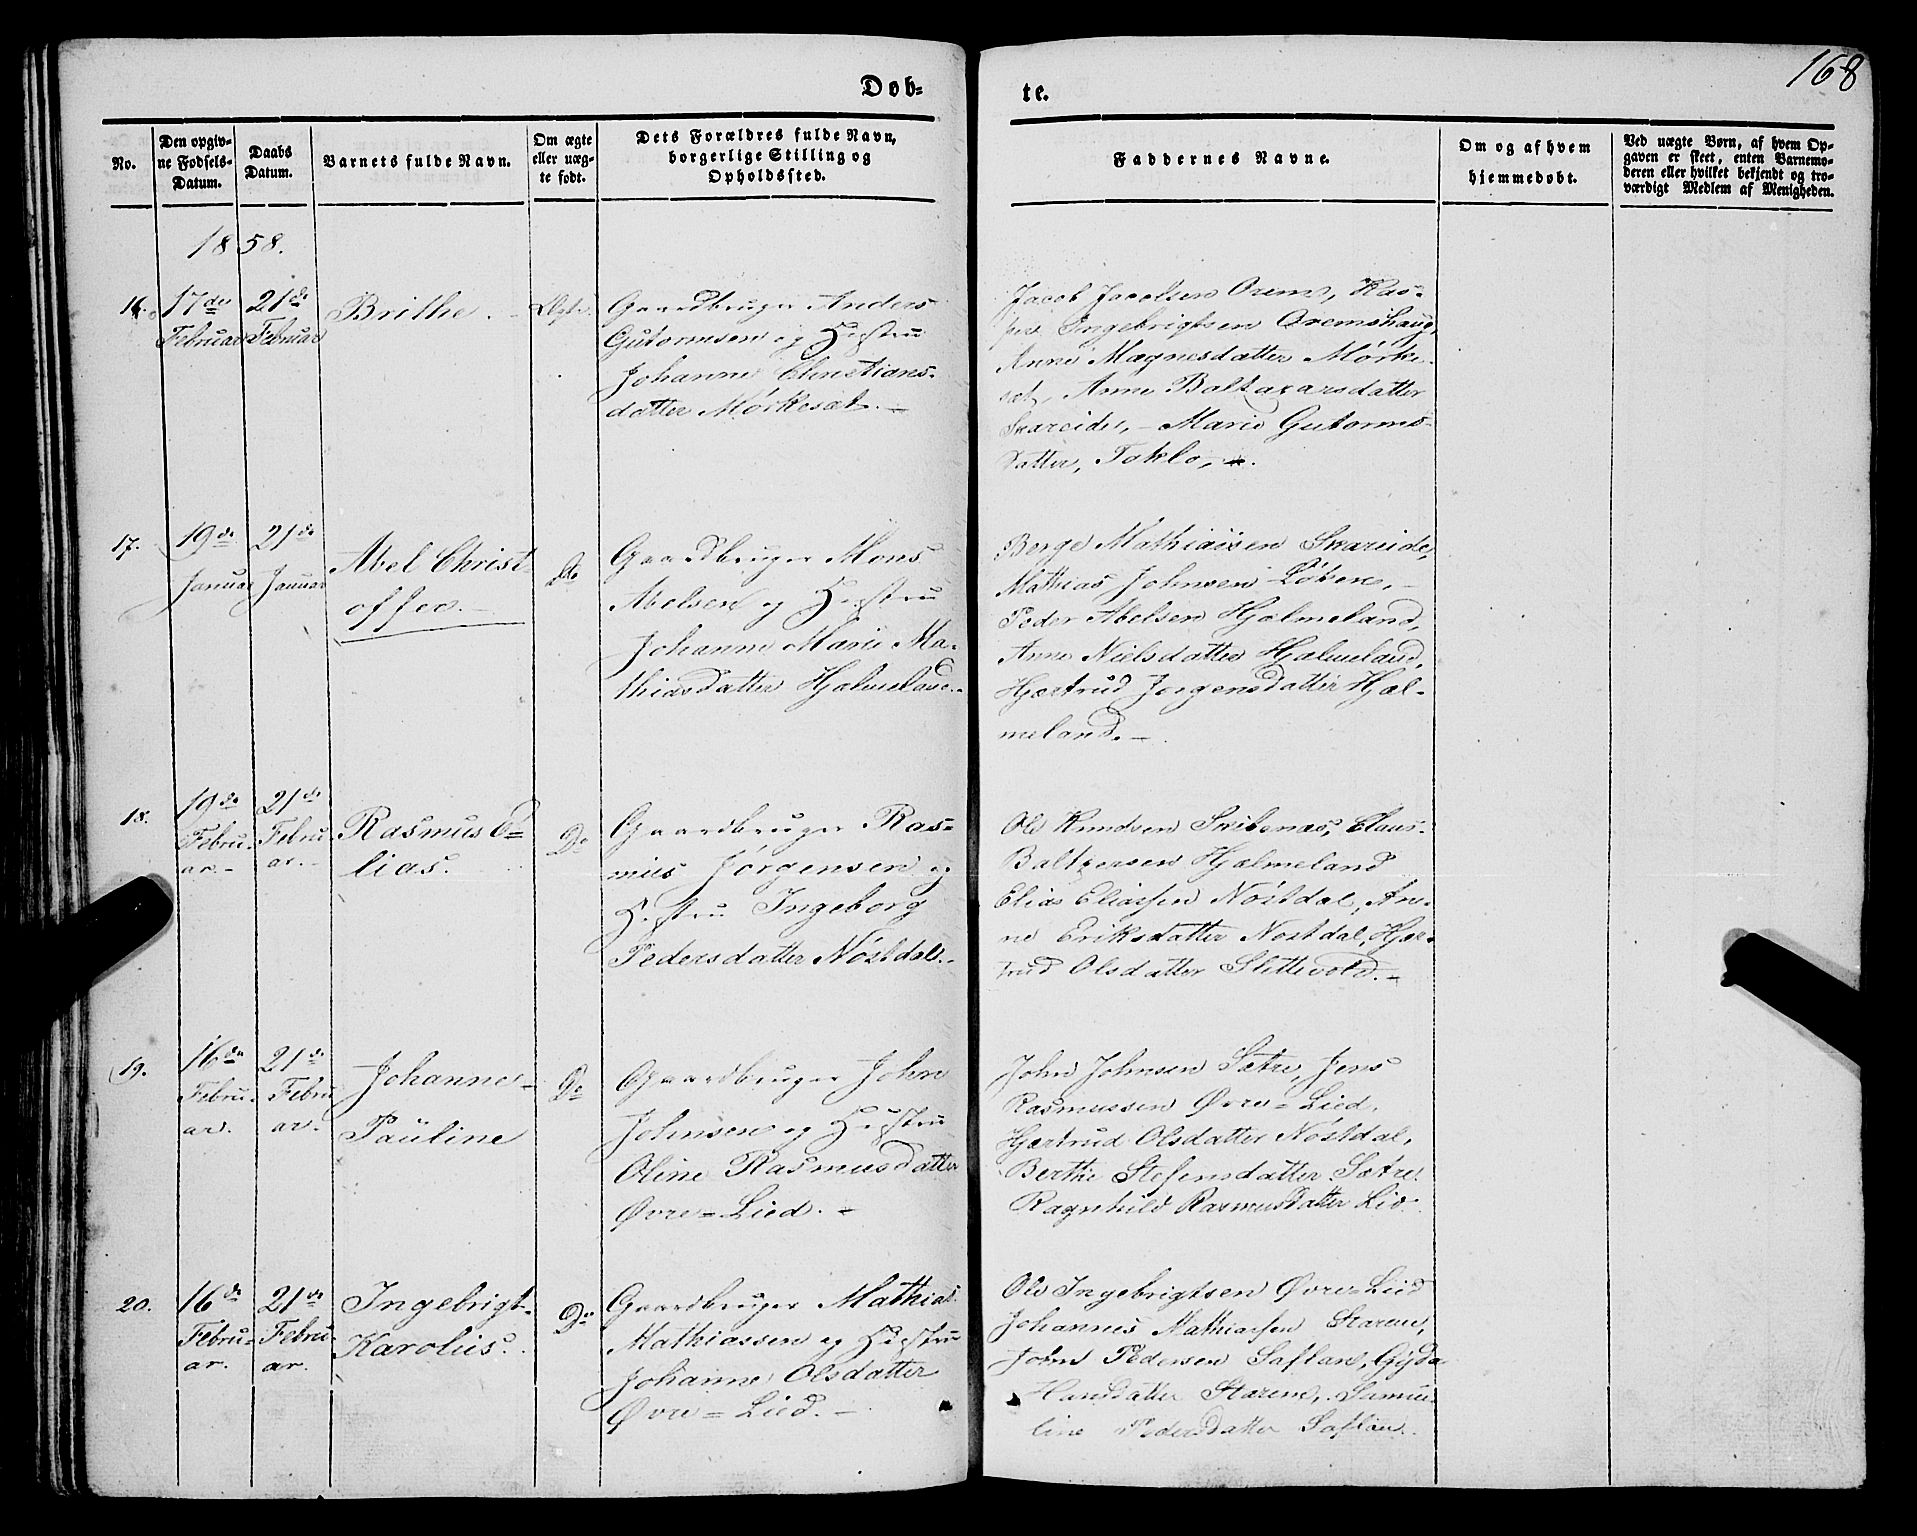 168
Døb-
te.
No.
Den opgiv-
ne Fødsels-
Datum.
Daabs
Datum.
Barnets fulde Navn.
Om ægte
eller uæg-
te født.
Dets Forældres fulde Navn,
borgerlige Stilling og
Opholdssted.
Faddernes Navne.
Om og af hvem
hjemmedøbt.
Ved uægte Børn, af hvem Op-
gaven er skeet, enten Barnemo-
deren eller hvilket bekjendt og tro-
værdigt Medlem af Menigheden.
1858.
16.
17de
Februar
21de
Februar
Brithe.
Ægte.
Gaardbruger Anders
Gutormsen og Hustru
Johanne Christians-
datter Mørkesæt.
Jacob Jacobsen Orem, Kas-
per Ingebrigtsen Oremshaug,
Anne Magnesdatter Mørke-
sæt, Anne Baltazarsdatter
Skareide, - Marie Gutorms-
datter, Toklo,
17.
19de
Januar
21de
Januar
Abel Christ-
offer.
Do
Gaardbruger Mons
Abelsen og Hustru
Johanne Marie Ma-
thiasdatter Hjelmeland.
Børge Mathiassen Skareide,
Mathias Johnsen Løken,
Peder Abelsen Hjælmeland,
Anne Nielsdatter Hjælmeland,
Hjertrud Jørgensdatter Hjæl-
meland.
18.
19de
Febru-
ar.
21de
Febru-
ar.
Rasmus E-
lias.
Do
Gaardbruger Ras-
mus Jørgensen og
Hustru Ingeborg
Pedersdatter Nøstdal.
Ole Knudsen Skibenæs, Claus
Baltzersen Hjælmeland
Elias Eliassen Nøstdal, An-
ne Eriksdatter Nøstdal, Hjer-
trud Olsdatter Slettevold.
19.
16de
Febru-
ar.
21de
Febru
ar.
Johanne-
Pauline
Do
Gaardbruger John
Johnsen og Hustru
Oline Rasmusdatter
Øvre=Lied.
John Johnsen Sætre, Jens
Rasmussen Øvre=Lied,
Hjertrud Olsdatter Nøstdal,
Berthe Stefensdatter Sætre.
Ragnhild Rasmusdatter Lid.
20.
16de
Febru-
ar.
21de
Febru-
ar.
Ingebrigt-
Karolus.
Do
Gaardbruger Mathias
Mathiassen og Hustru
Johanne Olsdatter
Øvre=Lied.
Ole Ingebrigtsen Øvre=Lied
Johannes Mathiassen Starem,
John Pedersen Saflan, Gjda
Hansdatter Starem, Samue-
line Pedersdatter Saflan.